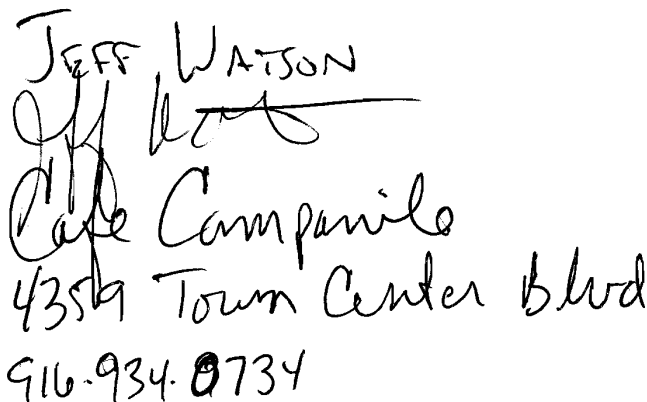 JEFF WATSON
Cafe Campanile
4359 Town Center Blvd
916.934.0734